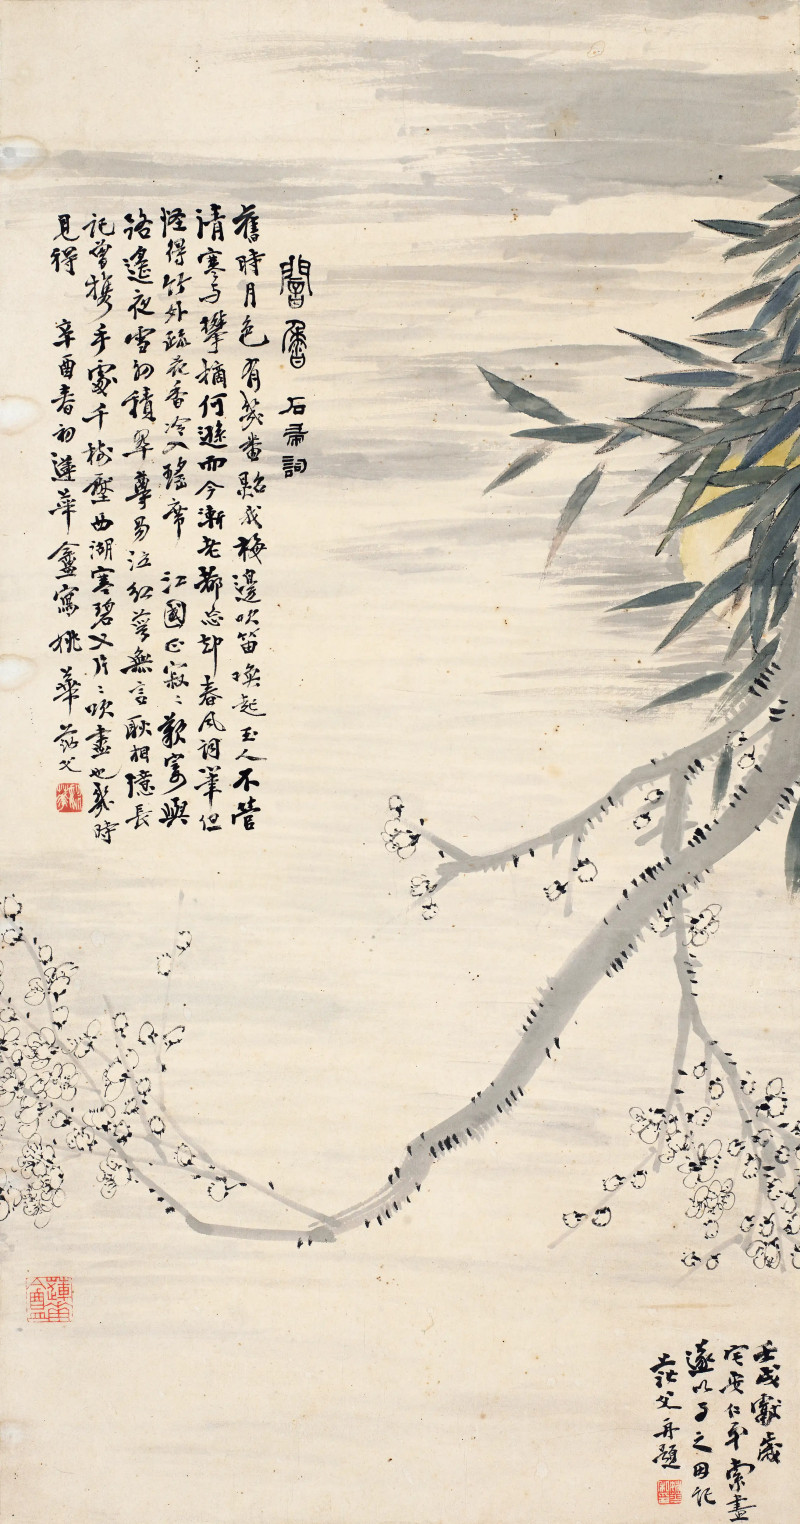 闇香 石帚詞
舊時月色有幾番照我梅邊吹笛喚起玉人不管
清寒與攀摘何遜而今漸老都忘却春風詞筆但
怪得竹外疏花香冷入瑤席 江國正寂〻歎寄與
路遙夜雪初積翠尊易泣紅萼無言耿相憶長
記曾攜手處千樹壓西湖寒碧又片〻吹盡也幾時
見得 辛酉春初蓮華盦寫 姚華茫父
蓮華盦
壬戌獻歲
宅仁弟索畫
遂以予之因記
茫父再題